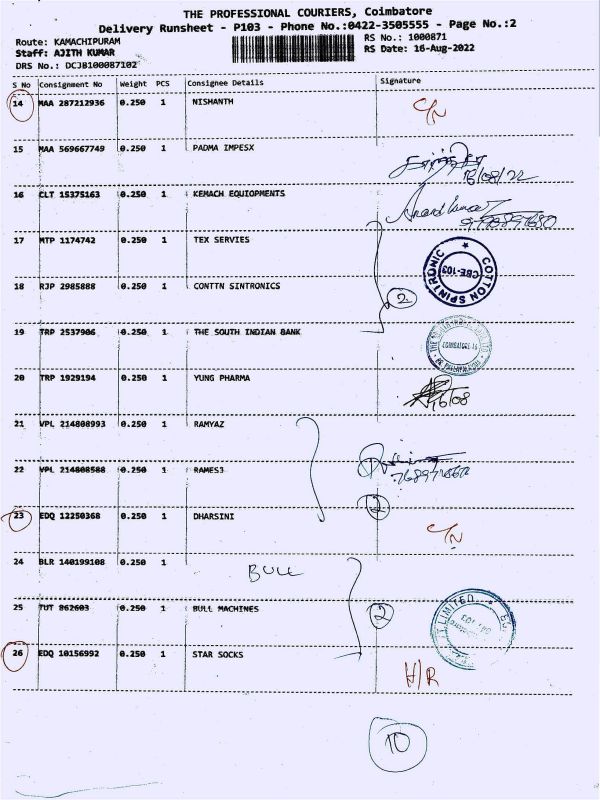 THE PROFESSIONAL COURIERS, Coimbatore
Delivery Runsheet - P103 - Phone No.:0422-3505555 - Page No.:2
Route: KAMACHIPURAM RS No.: 1000871
Staff: AJITH KUMAR RS Date: 16-Aug-2022
DRS No.: DCJB100087102
S No Consignment No Weight PCS Consignee Details Signature
14 MAA 287212936 0.250 1 NISHANTH C/N
15 MAA 569667749 0.250 1 PADMA IMPESX 16/08/22
16 CLT 15375163 0.250 1 KEMACH EQUIOPMENTS Anand kumar
17 MTP 1174742 0.250 1 TEX SERVIES
COTTON SPINTRONIC
CBE-103
18 RJP 2985888 0.250 1 CONTTN SINTRONICS 2
19 TRP 2537906 0.250 1 THE SOUTH INDIAN BANK
20 TRP 1929194 0.250 1 YUNG PHARMA 16/08
21 VPL 214808993 0.250 1 RAMYAZ
22 VPL 214808588 0.250 1 RAMESJ
2
23 EDQ 12250368 0.250 1 DHARSINI C/N
24 BLR 140199108 0.250 1 BULL
25 TUT 862603 0.250 1 BULL MACHINES 2
LIMITED
26 EDQ 10156992 0.250 1 STAR SOCKS H/R
10